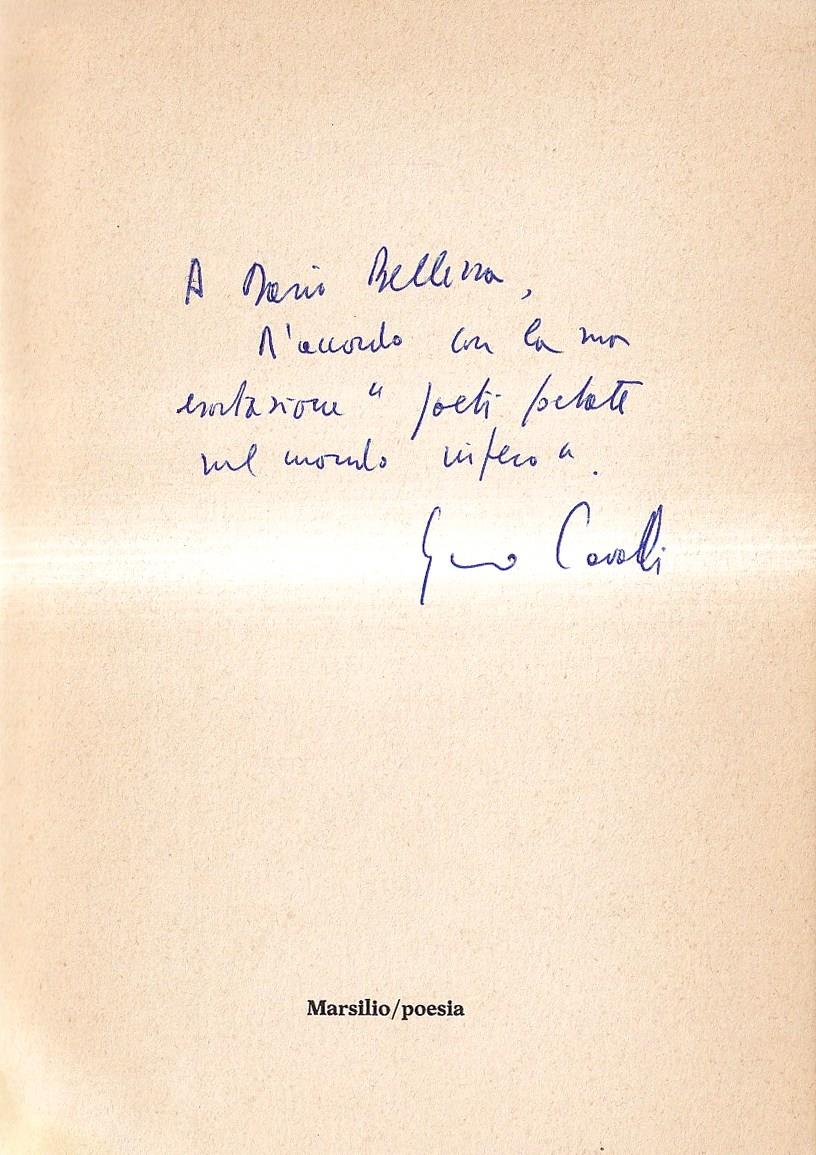 A Dario Bellezza,
D'accordo con la sua
esortazione " poeti
sul mondo intero ".
Cavalli
Marsilio/poesia